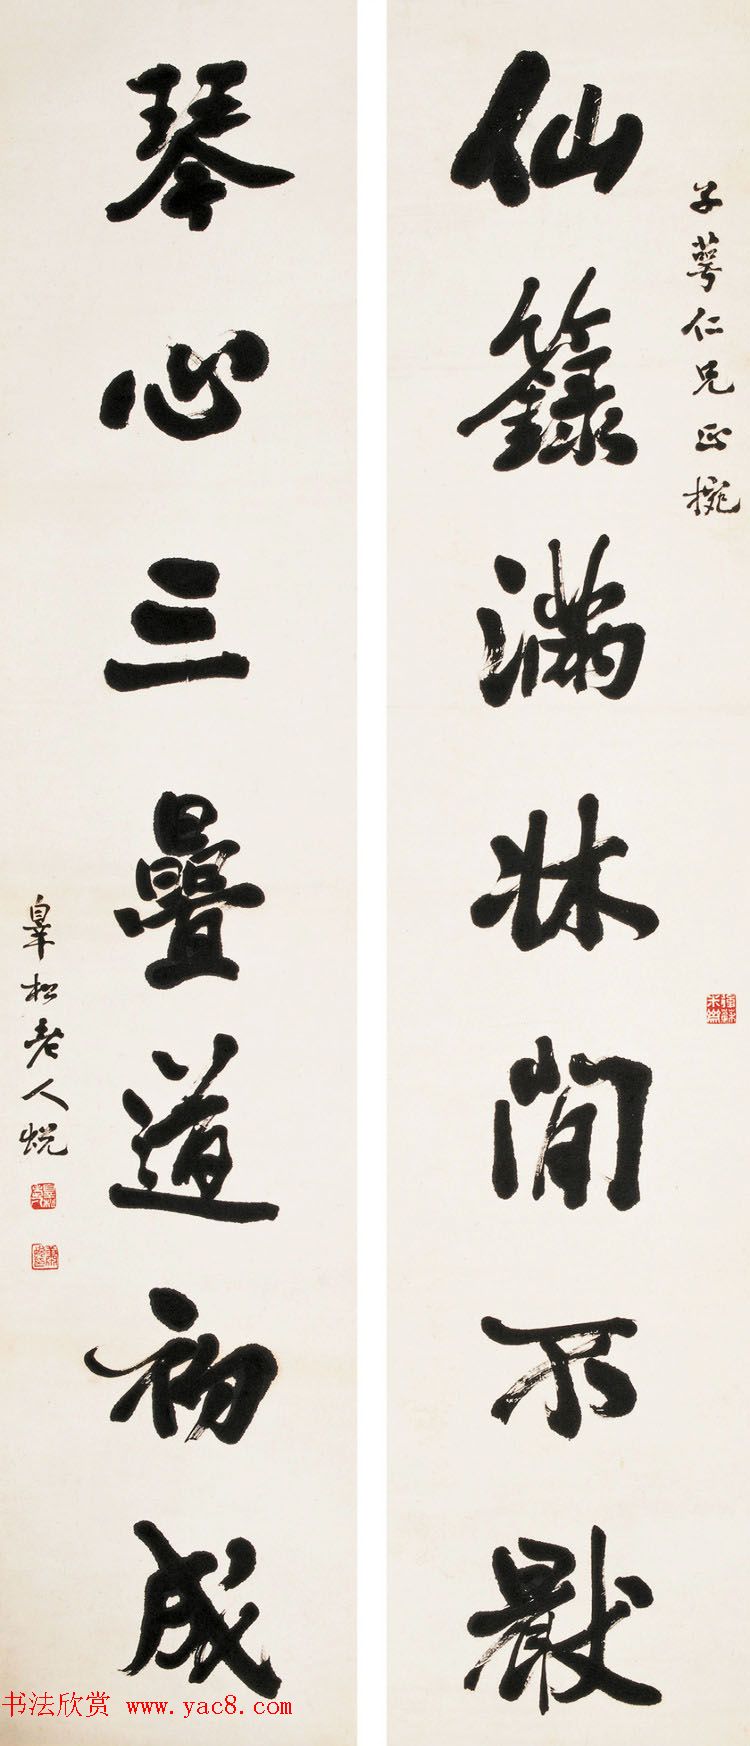 子萼仁兄正捥
仙籙滿牀閒不厭
琴心三疊道初成
皋松老人煾
书法欣赏 www.yac8.com